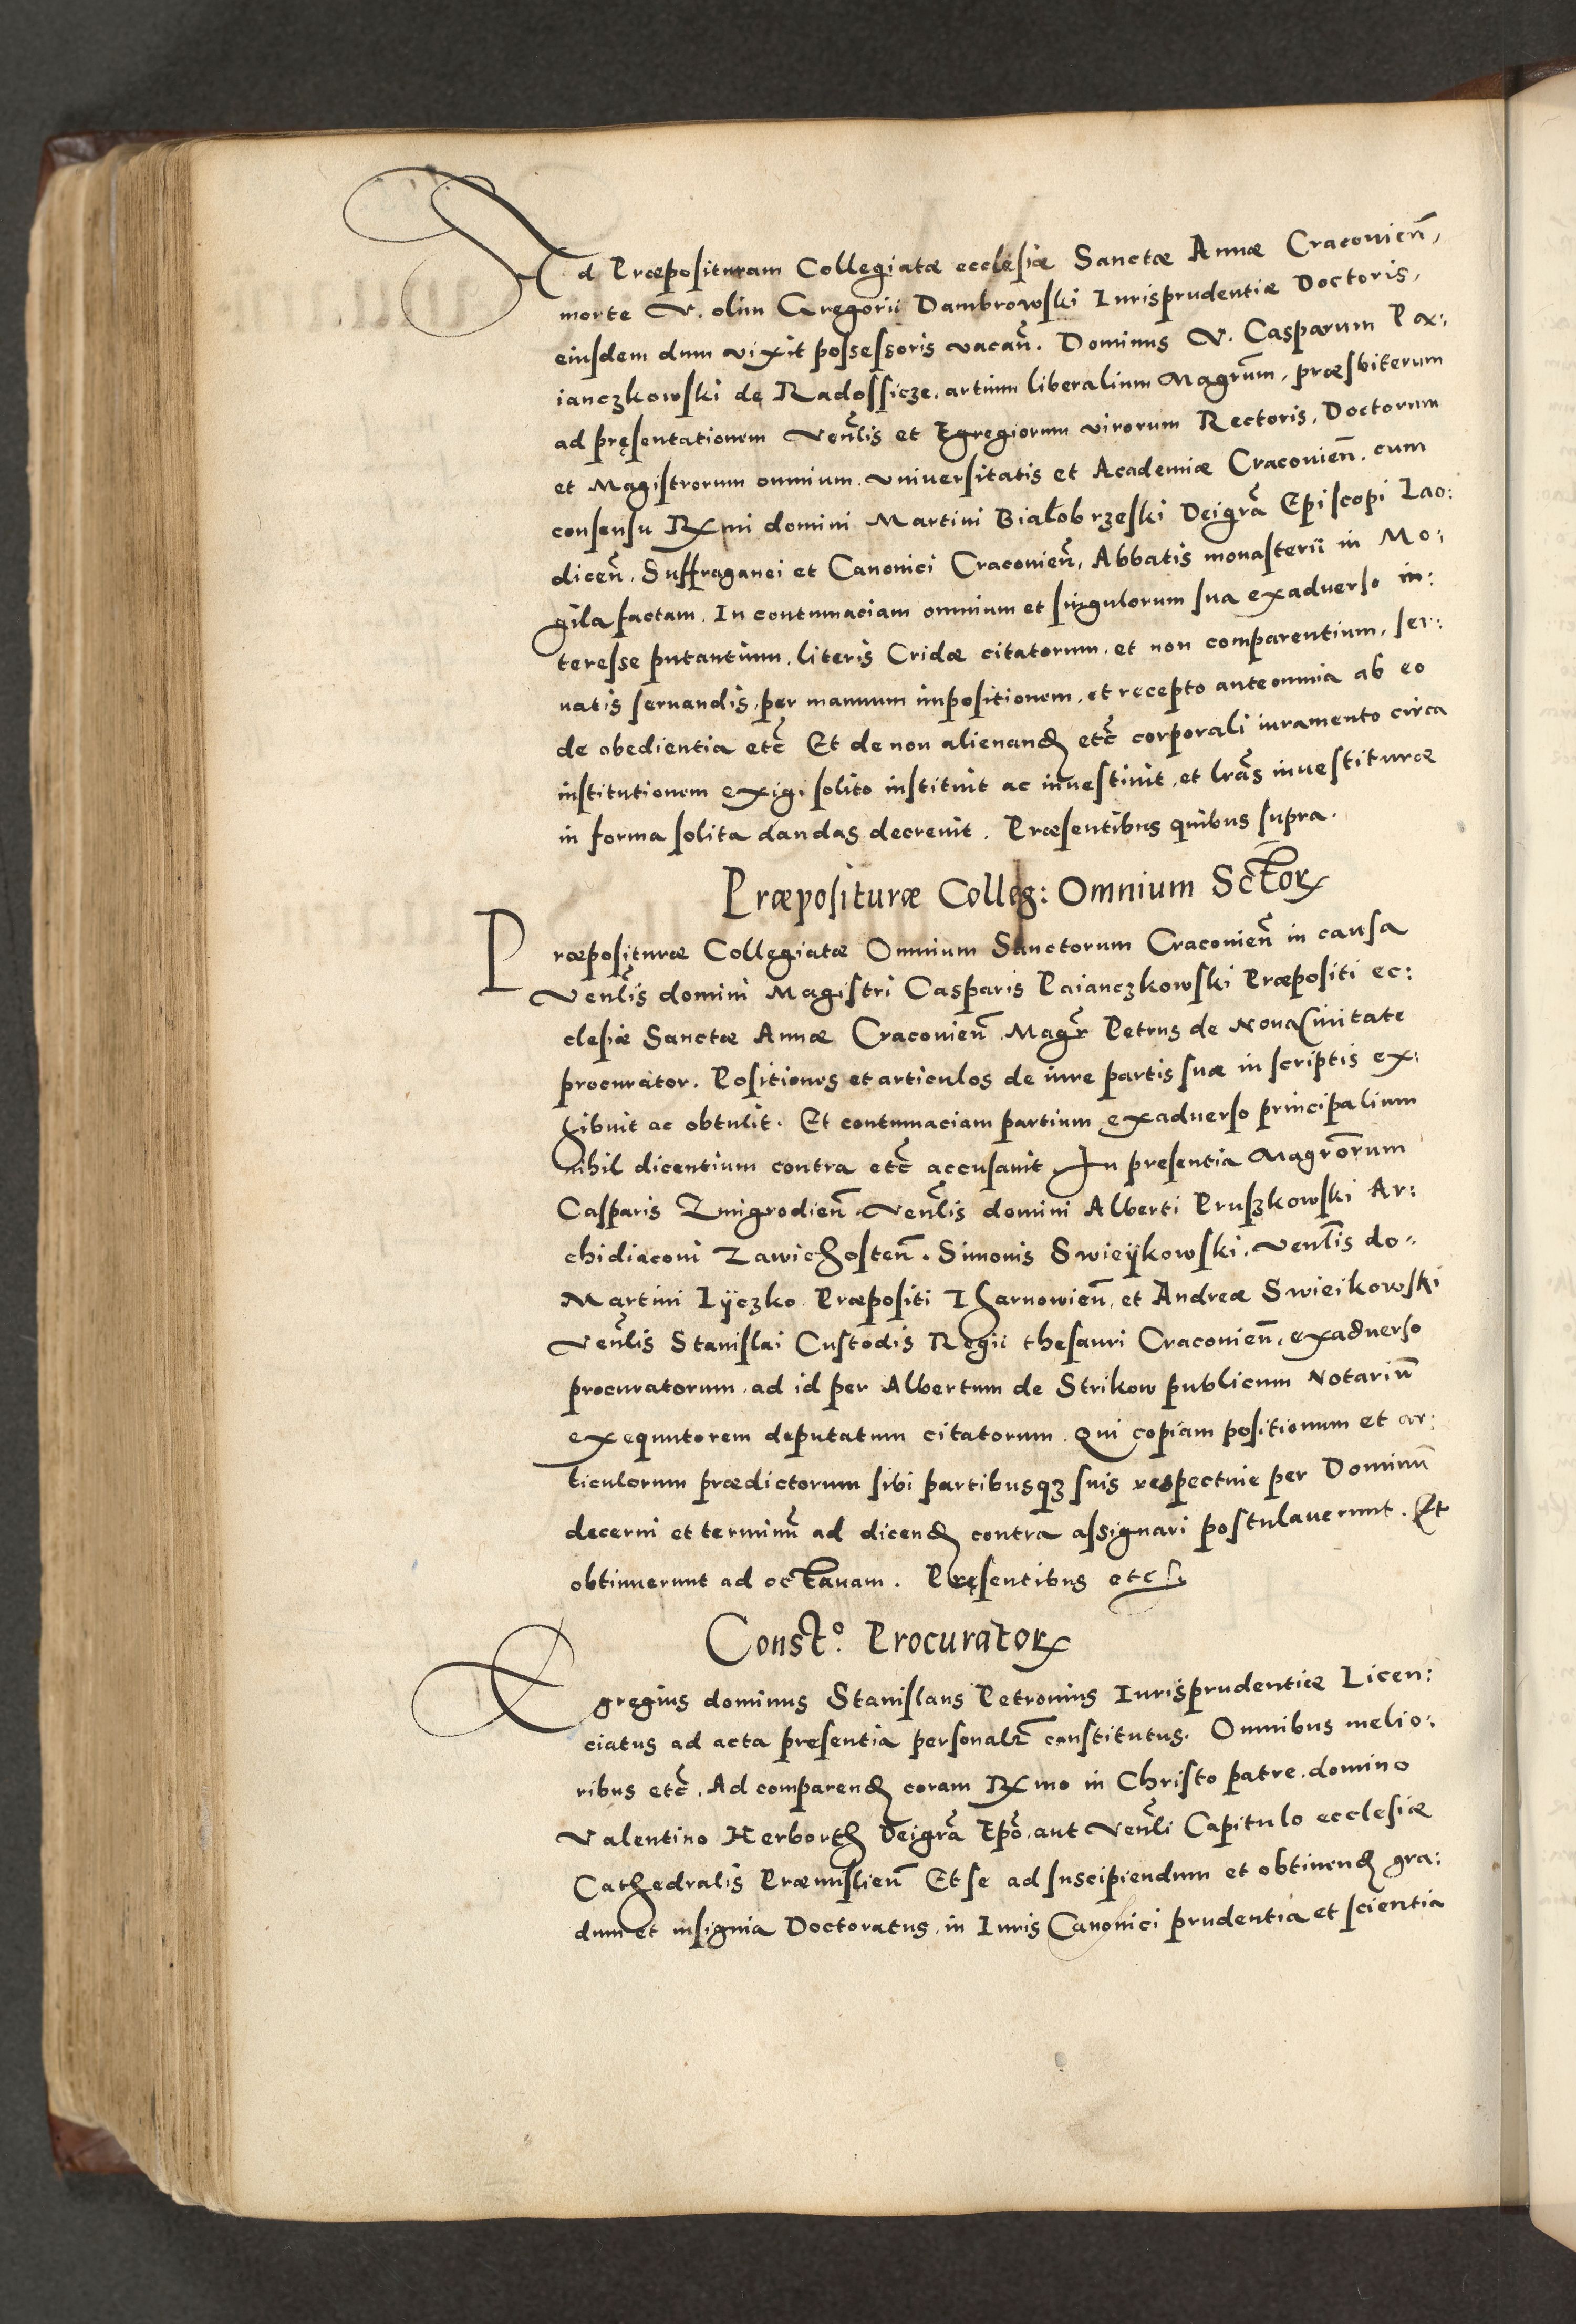 Ad Præposituram Collegiatæ ecclesiæ Sanctæ Annæ Cracovien̄,
morte V. olim Gregorii Dambrowski Iurisprudentiæ Doctoris,
eiusdem dum vixit possessoris vacan̄. Dominus V. Casparum Pa:
ianczkowski de Radossicze, artium liberalium Magrum̄, præsbiterum
ad pręsentationem Venl̄is et Egregiorum virorum Rectoris, Doctorum
et Magistrorum omnium Universitatis et Academiæ Cracovien̄. cum
consensu Rx̄mi domini Martini Bialobrzeski Deigrā Episcopi Lao:
dicen̄. Suffraganei et Canonici Cracovien̄, Abbatis monasterii in Mo:
gila factam. In contumaciam omnium et singulorum sua exadverso in:
teresse putantium, literis Cridæ citatorum, et non comparentium, ser:
uatis seruandis, per manuum impositionem, et recepto anteomnia ab eo
de obedientia etc̄ Et de non alienand etc̄ corporali iuramento circa
institutionem exigi solito instituit ac inuestiuit, et lrās inuestituræ
in forma solita dandas decreuit. Præsentibus quibus supra.
Præposituræ Colleg: Omnium Sctōrꝝ
Præposituræ Collegiatæ Omnium Sanctorum Cracovien̄ in causa
Venl̄is domini Magistri Casparis Paianczkowski Præpositi ec:
clesiæ Sanctæ Annæ Cracovien̄ Magr̄ Petrus de Noua Ciuitate
procurator. Positiones et articulos de iure partis suæ in scriptis ex:
hibuit ac obtulit. Et contumaciam partium exadverso principalium
nihil dicentium contra etc̄ accusauit. In presentia Magrōrum
Casparis Zmigrodien̄ Venl̄is domini Alberti Pruszkowski Ar:
chidiaconi Zawichosten̄. Simonis Swieÿkowski. Venl̄is do:
Martini Lÿczko Præpositi Tharnowien̄, et Andreæ Swieikowski
Venl̄is Stanislai Custodis Regii thesauri Cracovien̄, exadverso
procuratorum, ad id per Albertum de Strikow publicum Notariū
exequutorem deputatum citatorum. Qui copiam positionum et ar:
ticulorum prædictorum sibi partibusqȝ suis respectiue per Dominū
decerni et terminū ad dicend contra assignari postulauerunt. Et
obtinuerunt ad octauam. Pręsentibus etc
Const.º Procuratorꝝ
Egregius dominus Stanislaus Petronius Iurisprudentiæ Licen:
ciatus ad acta presentia personalr̄ constitutus. Omnibus melio:
ribus etc̄. Ad comparend coram Rx̄mo in Christo patre domino
Valentino Herborth Deigrā Epō. aut Venl̄i Capitulo ecclesiæ
Cathedralis Præmislien̄ Et se ad suscipiendum et obtinend gra:
dum et insignia Doctoratus, in Iuris Canonici prudentia et scientia